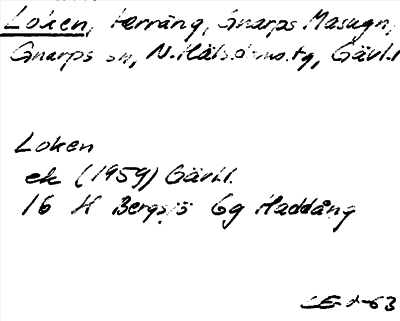 Loken, terräng, Gnarps Masugn,
Gnarps sn, N. Hälsingl. tg, Gävl.l
Loken
ek (1959) Gävl.l.
16 H Bergsjö 6g Haddång